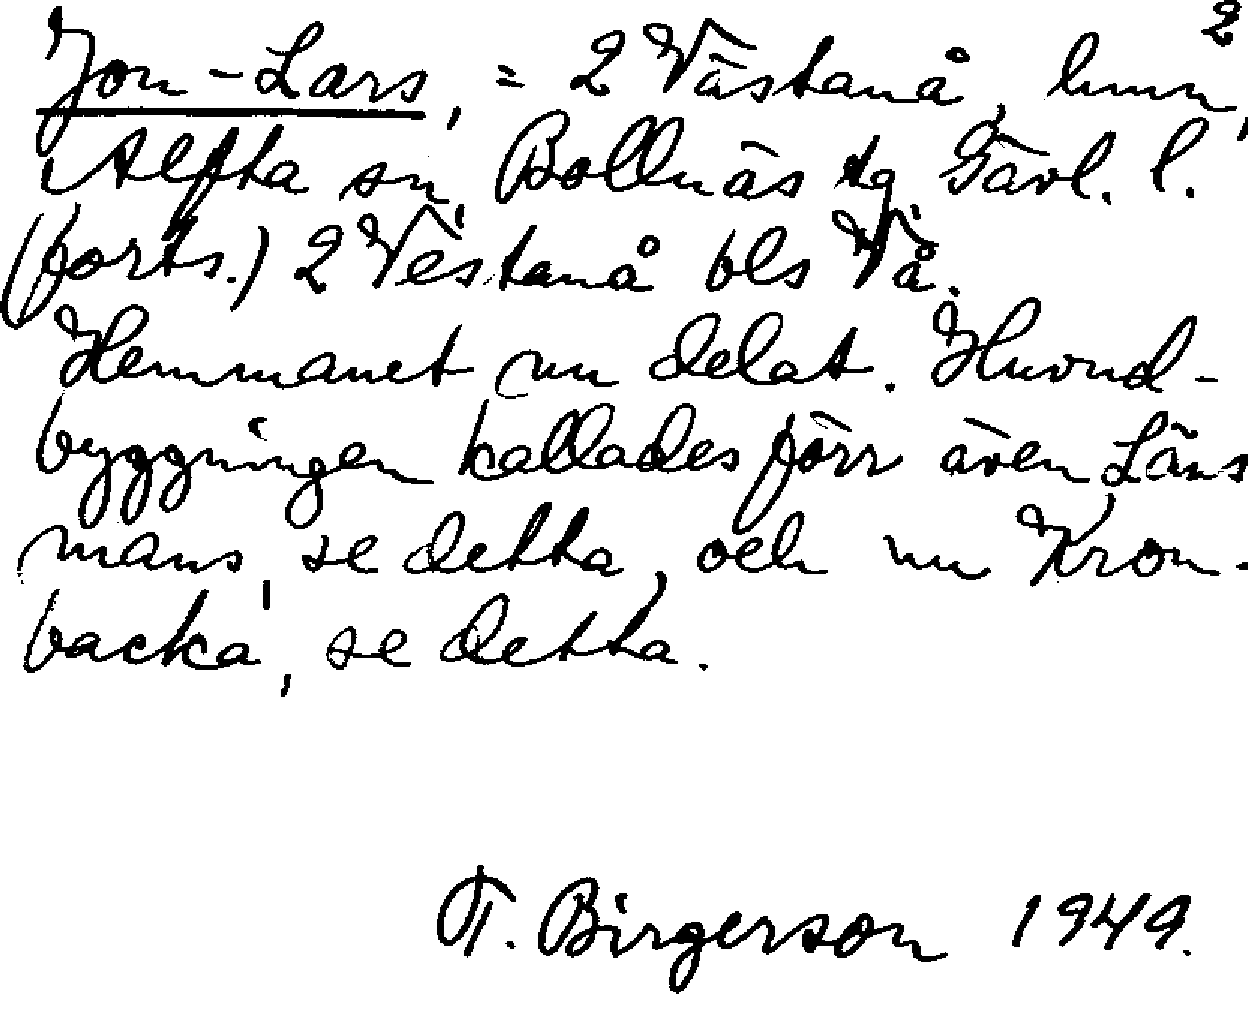 2
Jon-Lars, = 2 Västanå, hmn,
Alfta sn, Bollnäs tg Gävl. l.
(forts.) 2 Västanå bls Vå.
Hemmanet nu delat. Huvud-
byggningen kallades förr även Läns
mans, se detta, och nu Kron-
backa, se detta.
T. Birgerson 1949.